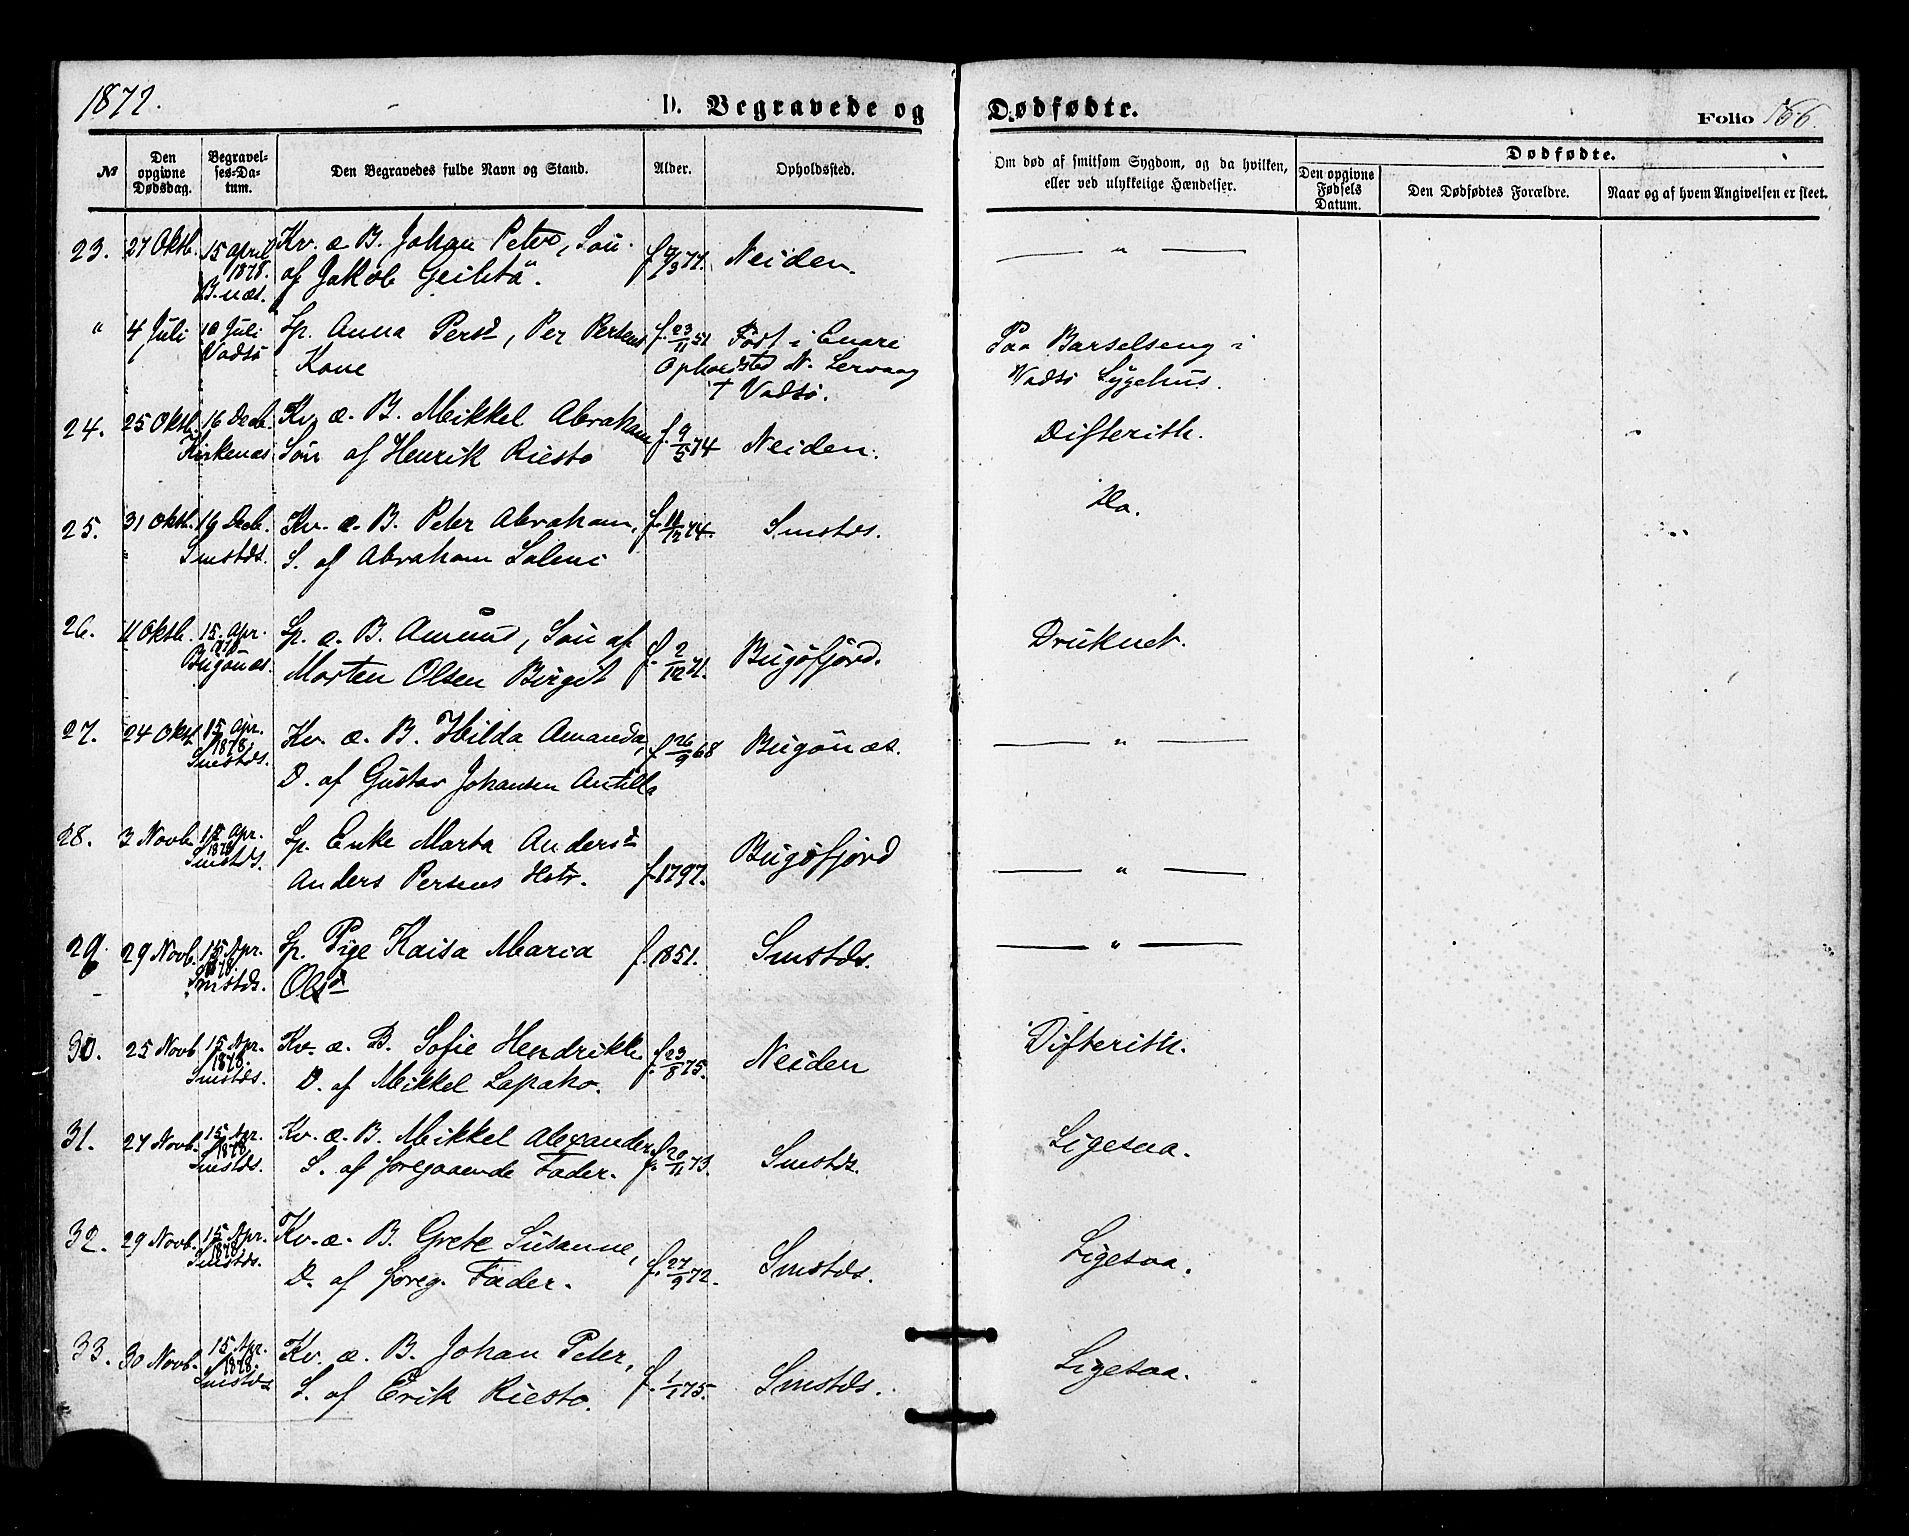 1877.
D. Begravede og Dødfødte.
Folio 166.
№
Den opgivne Dødsdag.
Begravelses-Datum.
Den Begravedes fulde Navn og Stand.
Alder.
Opholdssted.
Om død af smitsom Sygdom, og da hvilken, eller ved ulykkelige Hændelser.
Dødfødte.
Den opgivne Fødsels Datum.
Den Dødfødtes Forældre.
Naar og af hvem Angivelsen er skeet.
23. 27 Oktb. 15 April Kv. æ B. Johan Peter, Søn
1878. B.næs. af Jakob f. 71. Neiden. — " —
" 4 Juli 10 Juli Lp. Anna Persd, Per Persens f. 23/11 51 Født i Enare Paa Barselseng i
Vadsø Kone Opholdsted N. Lervaag Vadsø Sygehus.
† Vadsø.
24. 25 Oktb. 16 Decb. Kv. æ. B. Mikkel Abraham f. 9/5 74 Neiden. Difterith.
Kirkenæs Søn af Henrik Riesto
25. 31 Oktb. 16 Decb. Kv. æ. B. Peter Abraham, f. 74. Smstds. Do.
Smstds. S. af Abraham Salmi
26. 11 Oktb. 15. Apr. Lp. æ. B. Amund, Søn af f. 2/12 71. Bugöfjord. Druknet.
1878 Bugönæs. Morten Olsen Birget
27. 24 Oktb. 15 Apr. Kv. æ. B. Hilda Amanda, f. 26/9 68 Bugönæs. — " —
1878. Smstds. D. af Gustav Johansen Antilla
28. 3 Novb. 15 Apr. Lp. Enke Marta Andersd Bugöfjord
1878 Smstds. Anders Persens f. 1797. — " —
29. 29 Novb. 15 Apr. Lp. Pige Kaisa Maria f. 1851. Smstds. — " —
1878. Smstds. Olsd
30. 25 Novb. 15 Apr. Kv. æ. B. Sofie Hendrikke f. 23/8 75. Neiden Difterith.
1878. Smstds. D. af Mikkel Lapaho.
31. 27 Novb. 15 Apr. Kv. æ. B. Mikkel Alexander f. 20/11 73. Smstds. Ligesaa.
1878. Smstds. S. af foregaaende Fader.
32. 29 Novb. 15 Apr. Kv. æ. B. Grete Susanne, f. 27/9 72. Smstds. Ligesaa.
1878 Smstds. D. af foreg. Fader.
33. 30 Novb. 15 Apr. Kv. æ. B. Johan Peter, f. 1/1 75. Smstds. Ligesaa.
1878. Smstds. S. af Erik Riesto.